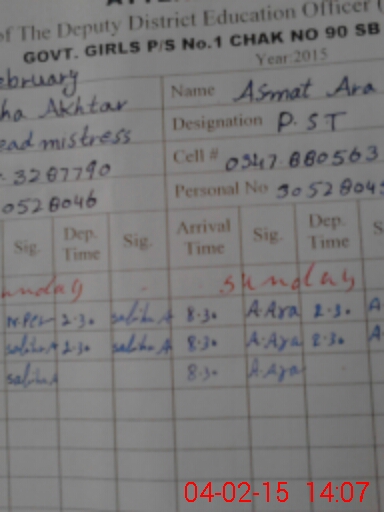 of The Deputy District Education Officer
GOVT. GIRLS P/S No.1 CHAK NO 90 SB
Year:2015
ebruary
Name Asmat Ara
ha Akhtar
ead mistress
Designation P.ST
3287790
Cell # 0347 880563
0528046
Personal No 3052804
Sig. Dep. Time Sig. Arrival Time Sig. Dep. Time S
unday sunday
2.30 saliha A 8.30 A.Ara 2.30 A
saliha A 2.30 saliha A 8.30 A.Ara 2.30 A
saliha A 8.30 A.Ara
04-02-15 14:07